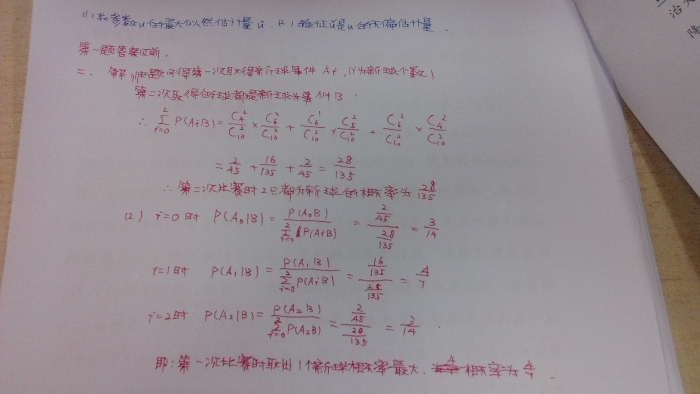 (1) 求参数u的最大似然估计量û. (2) 验证û是u的无偏估计量.
第一题答案仅前.
二. 解 (1) 由题可得第一次取得新球事件 Ai, (i为新球个数)
第二次取得的球都是新球为事件B
∴ ∑_{i=0}^{2} P(AiB) = C_4^2/C_10^2 × C_6^2/C_10^2 + C_6^1/C_10^2 × C_5^2/C_10^2 + C_6^2/C_10^2 × C_4^2/C_10^2
= 2/45 + 16/135 + 2/45 = 28/135
∴ 第二次比赛时2只都为新球的概率为 28/135
(2) i=0时 P(A0|B) = P(A0B)/∑_{i=0}^{2} P(AiB) = (2/45)/(28/135) = 3/14
i=1时 P(A1|B) = P(A1B)/∑_{i=0}^{2} P(AiB) = (16/135)/(28/135) = 4/7
i=2时 P(A2|B) = P(A2B)/∑_{i=0}^{2} P(A2B) = (2/45)/(28/135) = 3/14 .
即: 第一次比赛时取出1个新球概率最大, 概率为 4/7 .
治
降